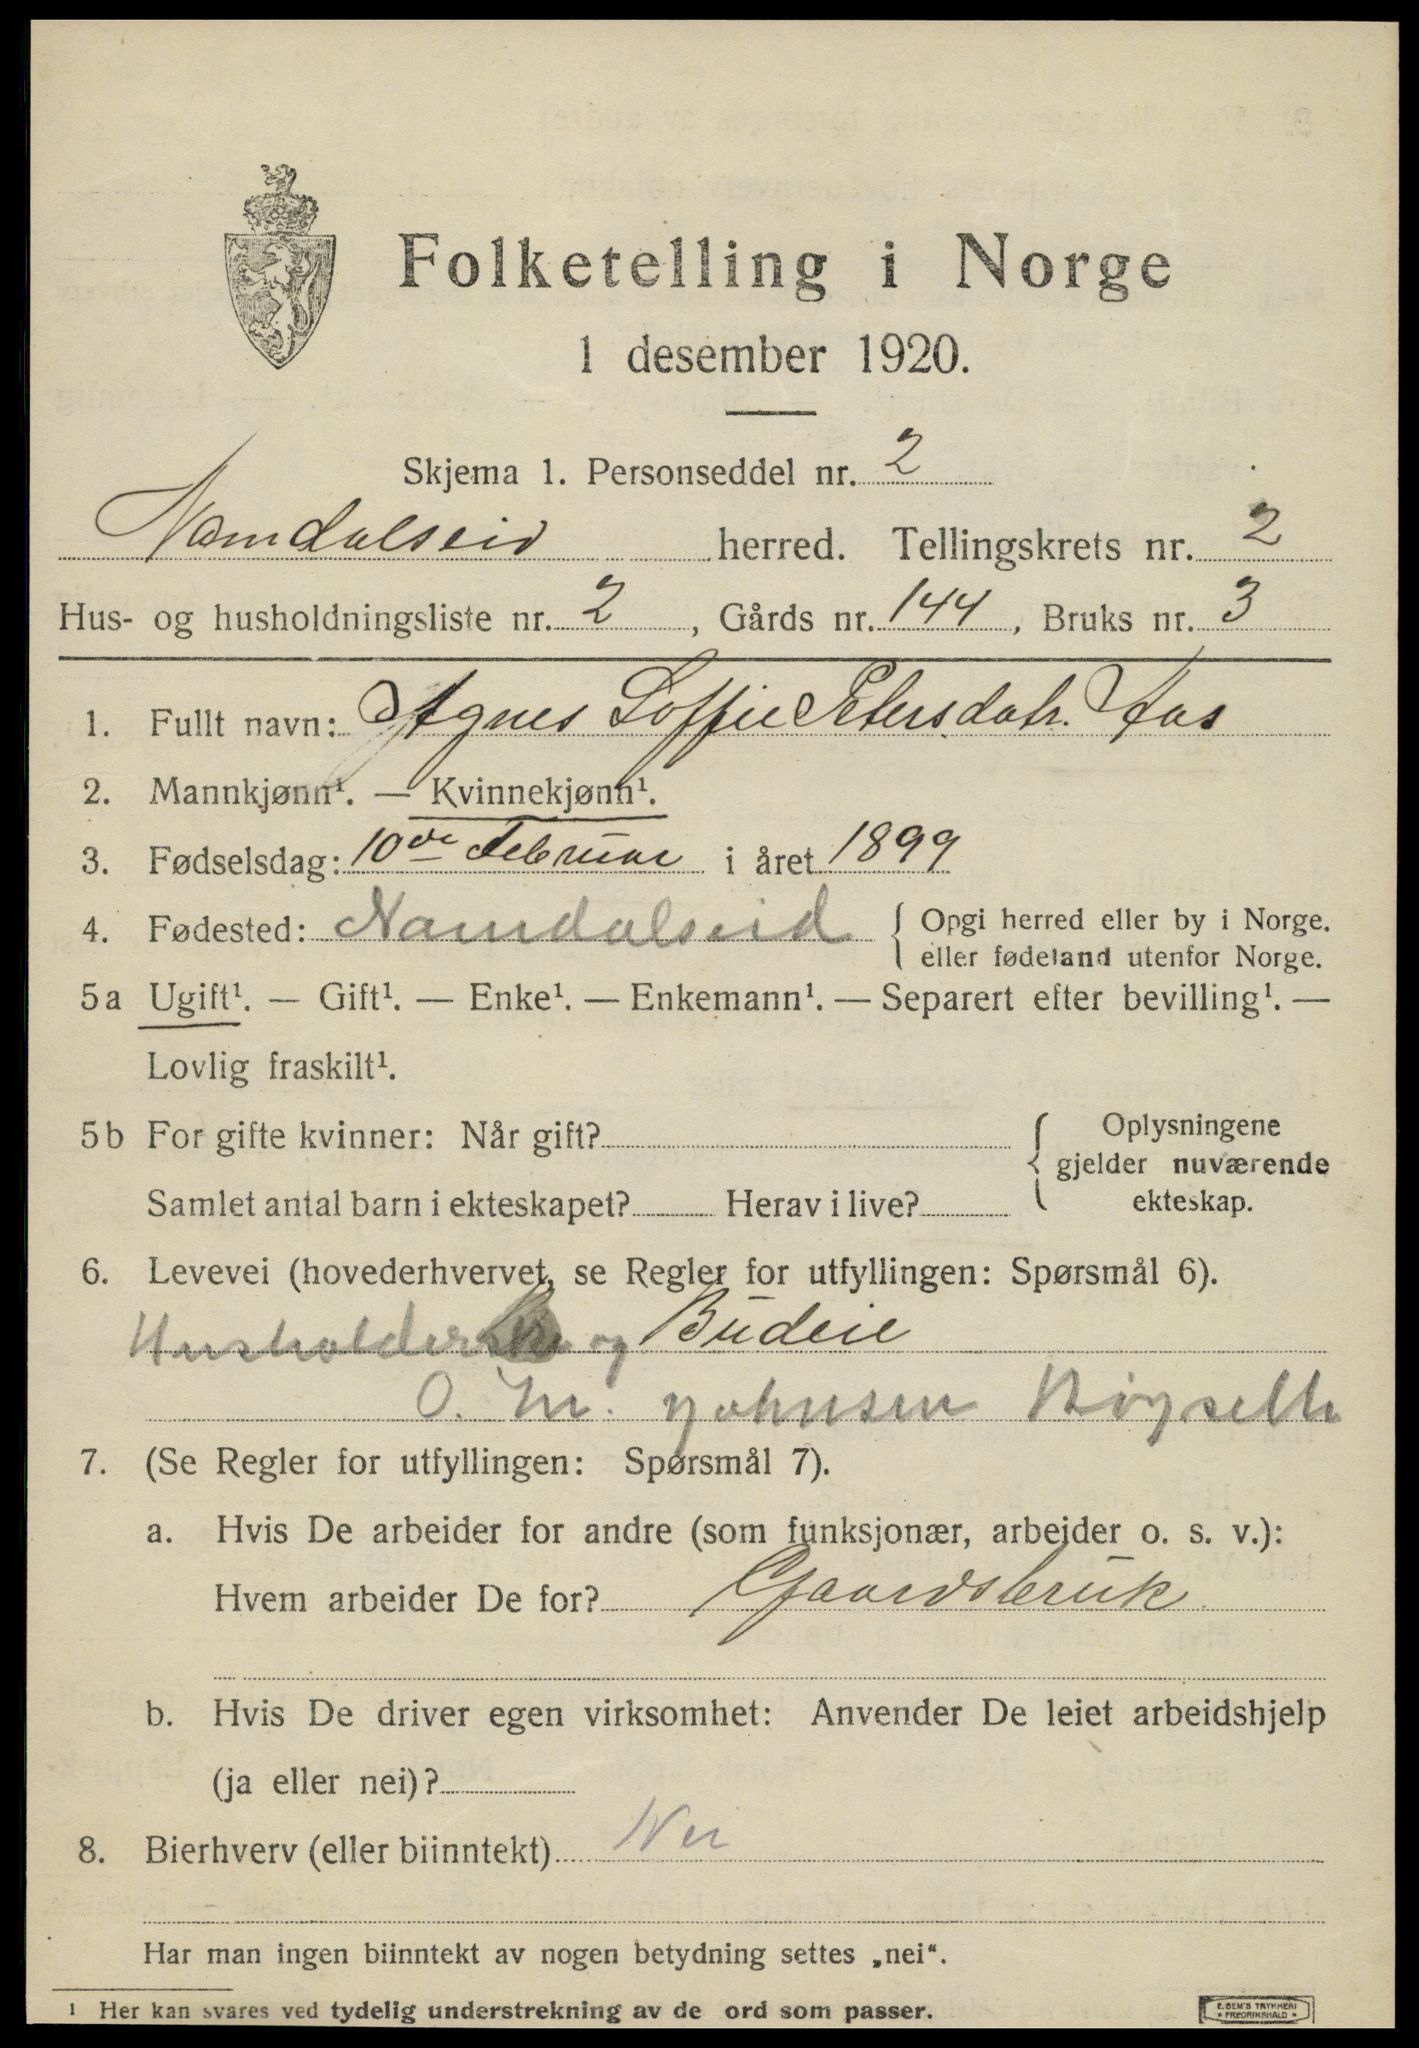 Folketelling i Norge
1 desember 1920.
Skjema 1. Personseddel nr. 2
Namdalseid herred. Tellingskrets nr. 2
Hus- og husholdningsliste nr. 2, Gårds nr. 144, Bruks nr. 3
1. Fullt navn: Agnes Soffie Petersdatr. Aas
2. Mannkjønn¹. — Kvinnekjønn¹.
3. Fødselsdag: 10de Februar i året 1899
4. Fødested: Namdalseid { Opgi herred eller by i Norge.
eller fødeland utenfor Norge.
5a Ugift¹. — Gift¹. — Enke¹. — Enkemann¹. — Separert efter bevilling¹. —
Lovlig fraskilt¹.
5b For gifte kvinner: Når gift? { Oplysningene
gjelder nuværende
Samlet antal barn i ekteskapet? Herav i live? ekteskap.
6. Levevei (hovederhvervet, se Regler for utfyllingen: Spørsmål 6).
Husholderske og Budeie
O. M. Johnsen
7. (Se Regler for utfyllingen: Spørsmål 7).
a. Hvis De arbeider for andre (som funksjonær, arbeider o. s. v.):
Hvem arbeider De for? Gaardsbruk
b. Hvis De driver egen virksomhet: Anvender De leiet arbeidshjelp
(ja eller nei)?
8. Bierhverv (eller biinntekt) Nei
Har man ingen biinntekt av nogen betydning settes „nei“.
¹ Her kan svares ved tydelig understrekning av de ord som passer.
E. SEM'S TRYKKERI
• FREDRIKSHALD •